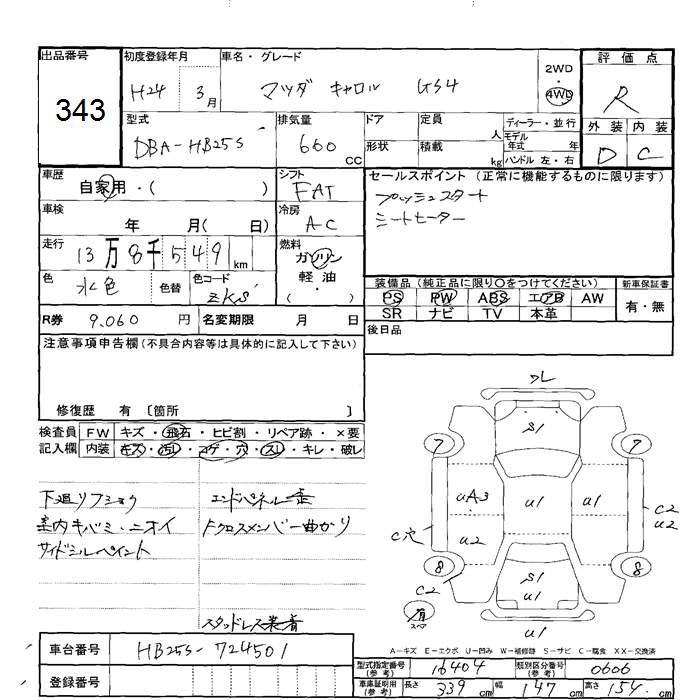 出品番号
343
初度登録年月
H24 3月
車名・グレード
マツダ キャロル GS4
2WD
4WD
評価点
R
型式
DBA-HB25S
排気量
660
CC
ドア
形状
定員
人
積載
kg
ディーラー・並行
モデル
年式 年
ハンドル 左・右
外装 内装
D C
車歴
自家用・( )
シフト
FAT
セールスポイント (正常に機能するものに限ります)
プッシュスタート
シートヒーター
車検
年 月( 日)
冷房
A-C
走行
13万8千549km
燃料
ガソリン
軽油
( )
色
水色
色替
色コード
ZKS
装備品 (純正品に限り○をつけてください)
PS PW ABS エアB AW
SR ナビ TV 本革
新車保証書
有・無
R券 9.060 円
名変期限 月 日
後日品
注意事項申告欄 (不具合内容等は具体的に記入して下さい)
修復歴 有 〔箇所 〕
検査員 FW キズ・飛石・ヒビ割・リペア跡・×要
記入欄 内装 キズ・汚レ・コゲ・穴・スレ・キレ・破レ
下廻リフショク
室内キバミ・ニオイ
サイドシルペイント
エンドパネル歪
クロスメンバー曲がり
スタッドレス装着
フレ
S1
7 7
UA3 U1 U1
C穴 U2
C2
U2
8 8
S1
U1
C2
有
スペア
U1
A-キズ E-エクボ U-凹み W-補修跡 S-サビ C-腐食 XX-交換済
車台番号 HB25S-724501
登録番号
型式指定番号
(参考)
16404
類別区分番号
(参考)
0606
車庫証明用
(参考)
長さ 339 cm 幅 147 cm 高さ 154 cm